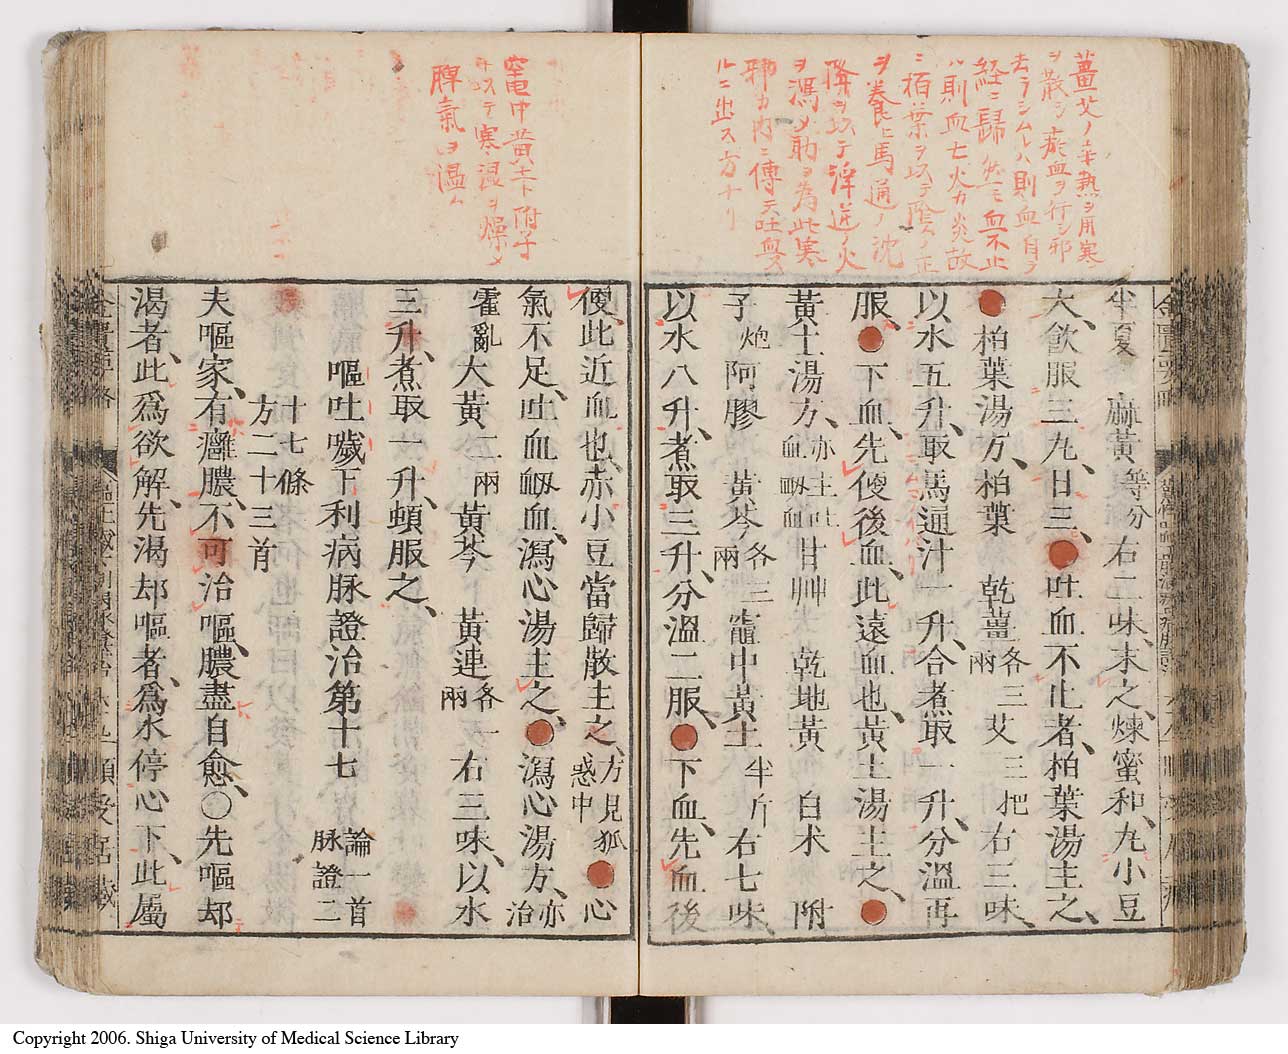 薑艾ノ辛熱ヲ用寒
ヲ散シ瘀血ヲ行シ邪
去ラシムレハ則血自ラ
経ニ歸然モ血不止
ハ則血亡火カ炎故
ニ栢葉ヲ以テ陰ノ正
ヲ養ヒ馬通ノ沈
降ヲ以テ浮逆ノ火
ヲ瀉メ助ヲ為此寒
邪カ内ニ傳テ吐
ルニ出ス方ナリ
半夏 麻黃等分右二味、末之、煉蜜和、丸小豆
大、飲服三丸、日三、●吐血不止者、柏葉湯主之、
●柏葉湯方、柏葉 乾薑各三兩 艾三把右三味、
以水五升、取馬通汁一升、合煮取一升、分溫再
服、●下血先便後血、此遠血也、黃土湯主之、●
黃土湯方、亦主吐血衂血甘艸 乾地黃 白术 附
子炮 阿膠 黃芩各三兩 竈中黃土半斤右七味、
以水八升、煮取三升、分溫二服、●下血、先血後
竈中黄土ト附子
ヲ以テ寒湿ヲ燥メ
脾氣ヲ温ム
便、此近血也、赤小豆當歸散主之、方見狐惑中●心
氣不足、吐血衂血、瀉心湯主之、●瀉心湯方、亦治
霍亂大黃二兩 黃芩 黃連各一兩 右三味、以水
三升、煮取一升、頓服之、
嘔吐噦下利病脉證治第十七 論一首脉證二
十七條方二十三首
夫嘔家、有癰膿、不可治嘔、膿盡自愈、○先嘔却
渴者、此爲欲解、先渴却嘔者、爲水停心下、此屬